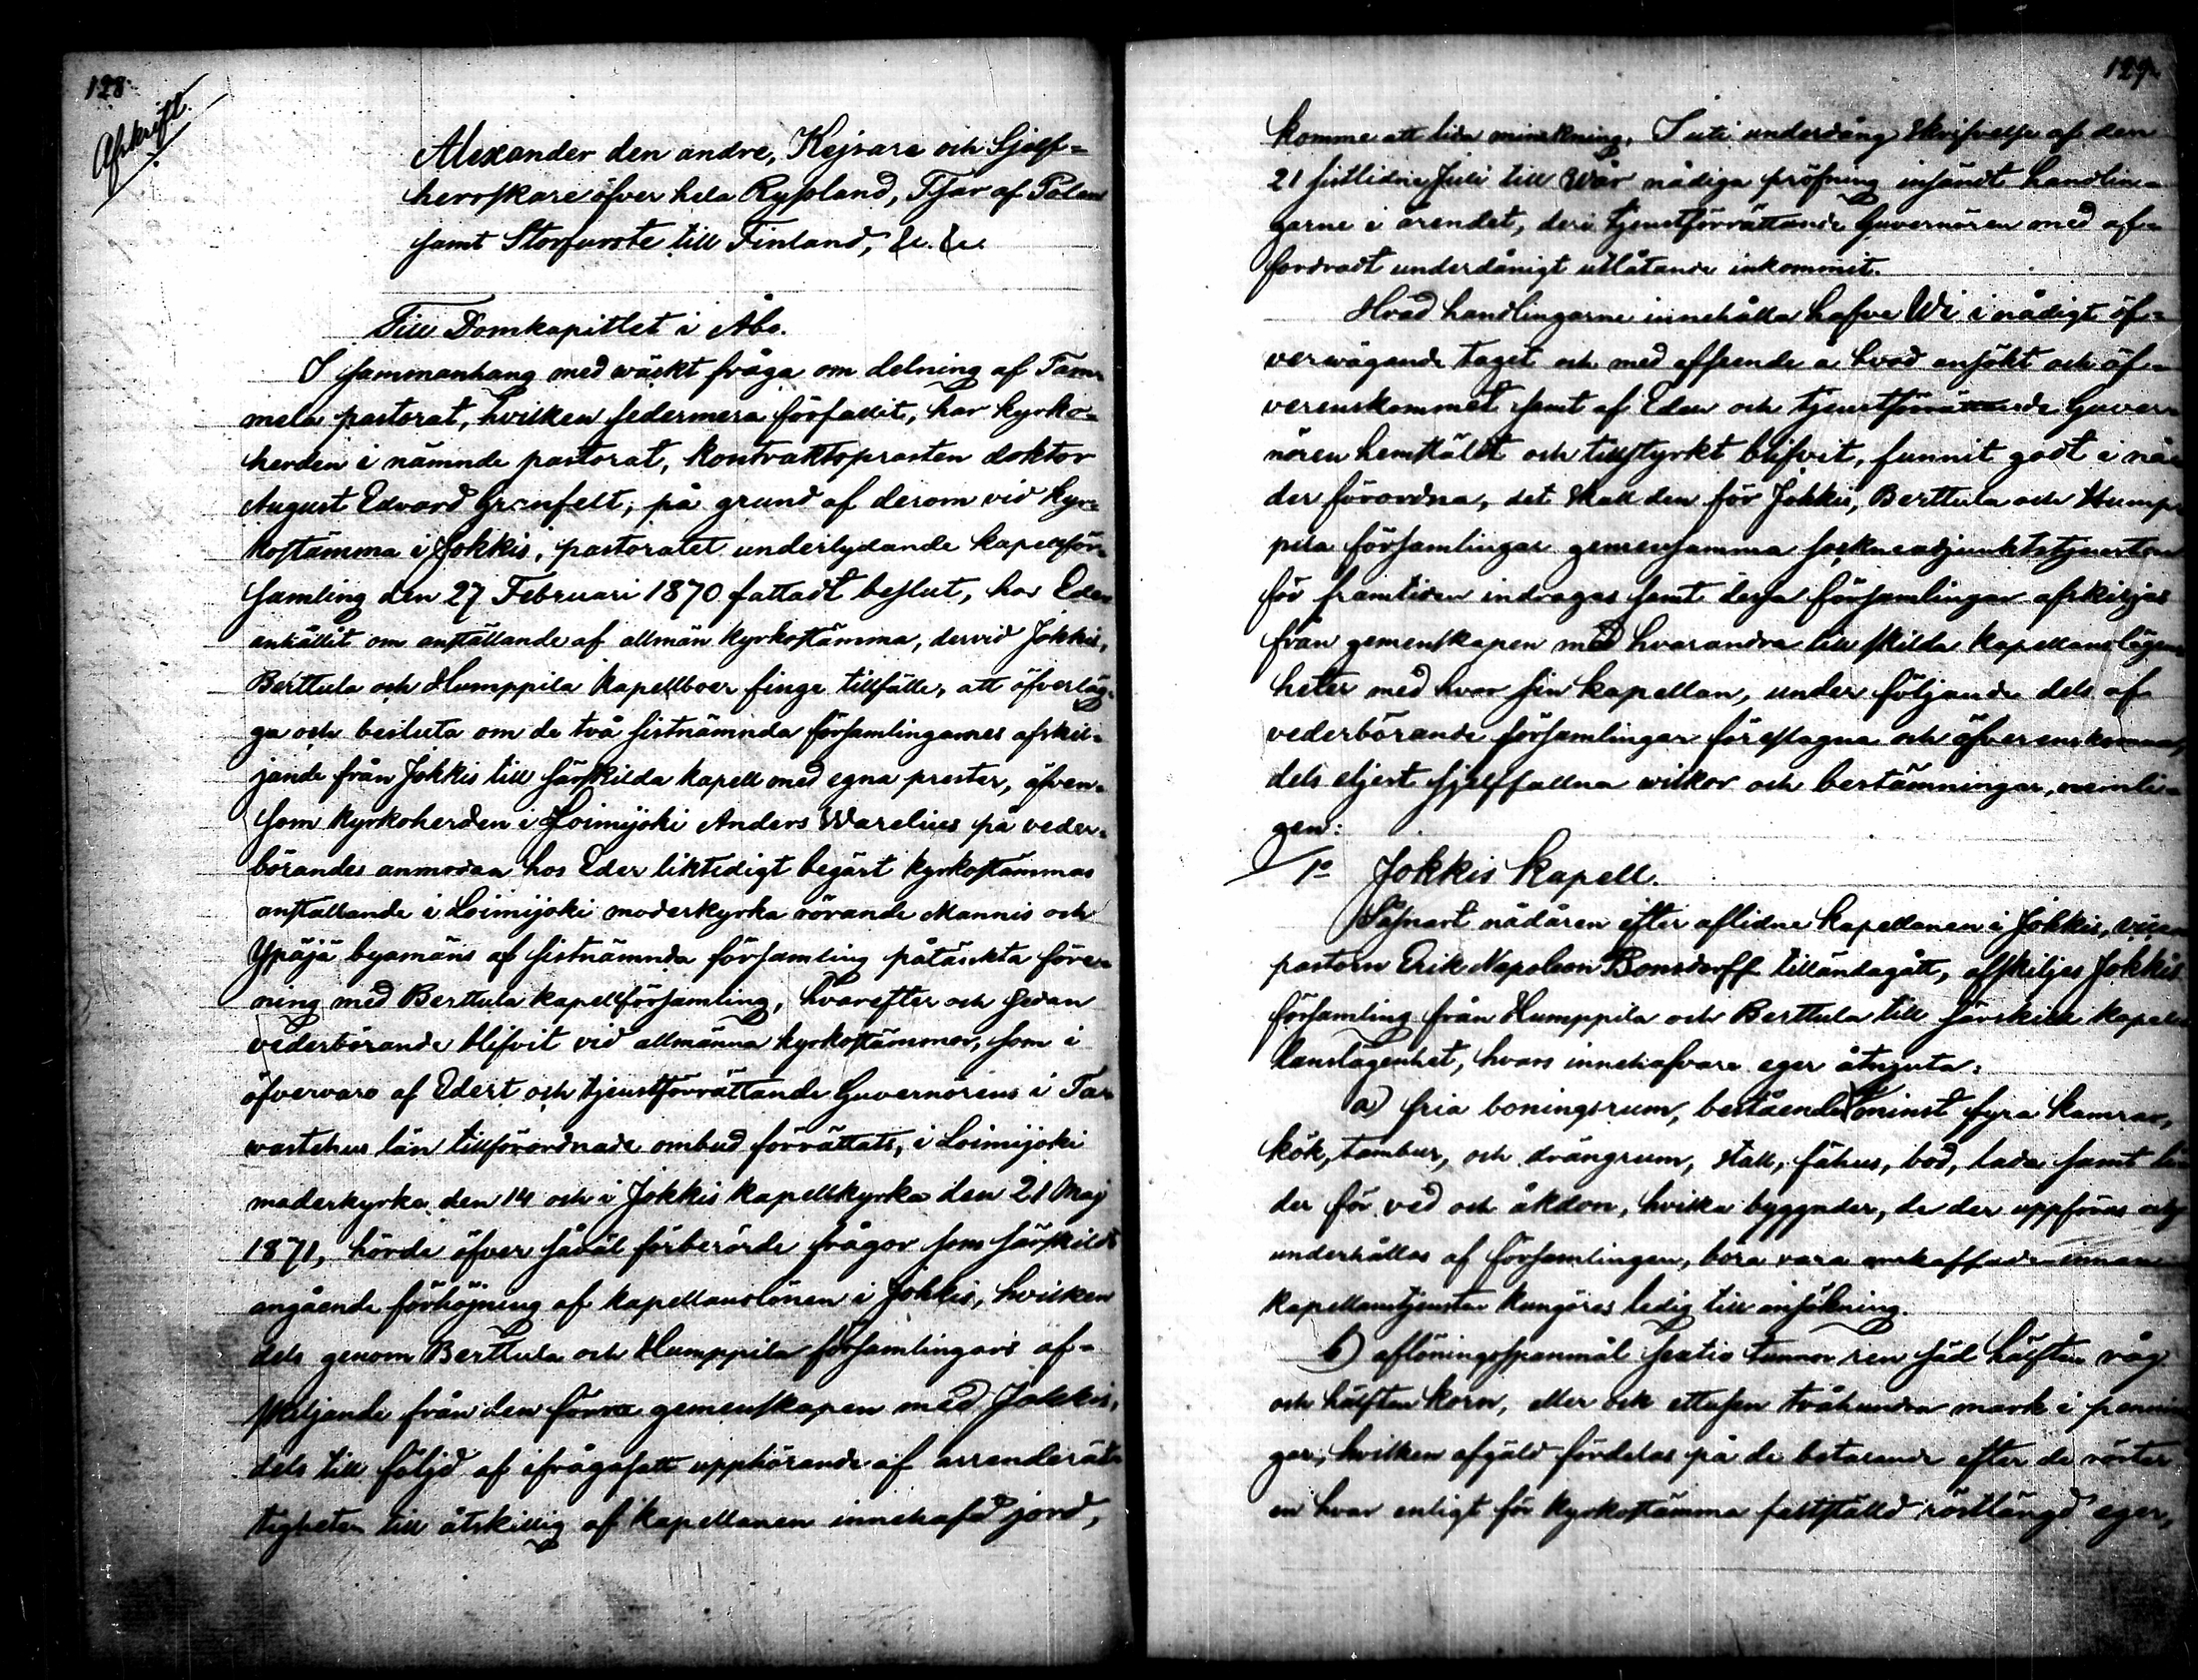 128.
Afskrift.
Alexander den andre, Kejsare och Sjelf-
herrskare öfver hela Ryssland, Tsar af Polen
samt Storfurste till Finland, &c. &c.
Till Domkapitlet i Åbo.
I sammanhang med väckt fråga om delning af Tam-
mela pastorat, hvilken sedermera förfallit, har kyrko-
herden i nämnde pastorat, kontraktsprosten doktor
August Edvard Granfelt, på grund af derom vid kyr-
kostämma i Jokkis, pastoratet underlydande kapellför-
samling den 27 Februari 1870 fattadt beslut, hos Eder
anhållit om anställande af allmän kyrkostämma, dervid Jokkis,
Berttula och Humppila kapellboer finge tillfälle, att öfverläg-
ga och besluta om de två sistnämnda församlingarnes afskil-
jande från Jokkis till särskilda kapell med egna prester, äfven-
som kyrkoherden i Loimijoki Anders Warelius på veder-
börandes anmodan hos Eder liktidigt begärt kyrkostämmas
anställande i Loimijoki moderkyrka rörande Mannis och
Ypäjä byamäns af sistnämnda församling påtänkta före-
ning med Berttula kapellförsamling, hvarefter och sedan
vederbörande blifvit vid allmänna kyrkostämmor, som i
öfvervaro af Edert och tjenstförrättande Guvernörens i Ta-
wastehus län tillförordnade ombud förrättats, i Loimijoki
moderkyrka den 14 och i Jokkis kapellkyrka den 21 Maj
1871, hörde öfver såväl förberörde frågor som särskildt
angående förhöjning af kapellanslönen i Jokkis, hvilken
dels genom Berttula och Humppila församlingars af-
skiljande från den förra gemenskapen med Jokkis,
dels till följd af ifrågasatt upphörande af arrenderät-
tigheten till åtskillig af kapellanen innehafd jord,
129.
komme att lida minskning, I uti underdånig skrifvelse af den
21 sistlidne Juli till Wår nådiga pröfning insändt handlin-
garne i ärendet, deri tjenstförrättande Guvernören med af-
fordradt underdånigt utlåtande inkommit.
Hvad handlingarne innehålla hafve Wi i nådigt öf-
vervägande taget och med afseende å hvad ansökt och öf-
verenskommet samt af Eder och tjenstförrättande Guver-
nören hemstäldt och tillstyrkt blifvit, funnit godt i nå-
der förordna, det skall den för Jokkis, Berttula och Hump-
pila församlingar gemensamma sockneadjunktstjensten
för framtiden indragas samt dessa församlingar afskiljas
från gemenskapen med hvarandra till skilda kapellanslägen-
heter med hvar sin kapellan, under följande dels af
vederbörande församlingar föreslagna och öfverenskomna,
dels eljest sjelffallna wilkor och bestämningar, nemli-
gen:
1o Jokkis kapell.
Såsnart nådåren efter aflidne kapellanen i Jokkis, vice
pastorn Erik Napoleon Bonsdorff tilländagått, afskiljes Jokkis
församling från Humppila och Berttula till särskild kapel-
lanslägenhet, hvars innehafvare eger åtnjuta:
a) fria boningsrum, bestående minst fyra kamrar,
kök, tambur, och drängrum, stall, fähus, bod, lada samt li-
der för ved och åkdon, hvilka byggnader, de der uppföras och
underhållas af församlingen, böra vara anskaffade innan
kapellanstjensten kungöres ledig till ansökning.
b) aflöningsspanmål sextio tunnor ren säd hälften råg
och hälften korn, eller ock ettusen tvåhundra mark i pennin-
gar, hvilken afgäld fördelas på de betarande efter de röster
en hvar enligt för kyrkostämma fastställd röstlängd eger,